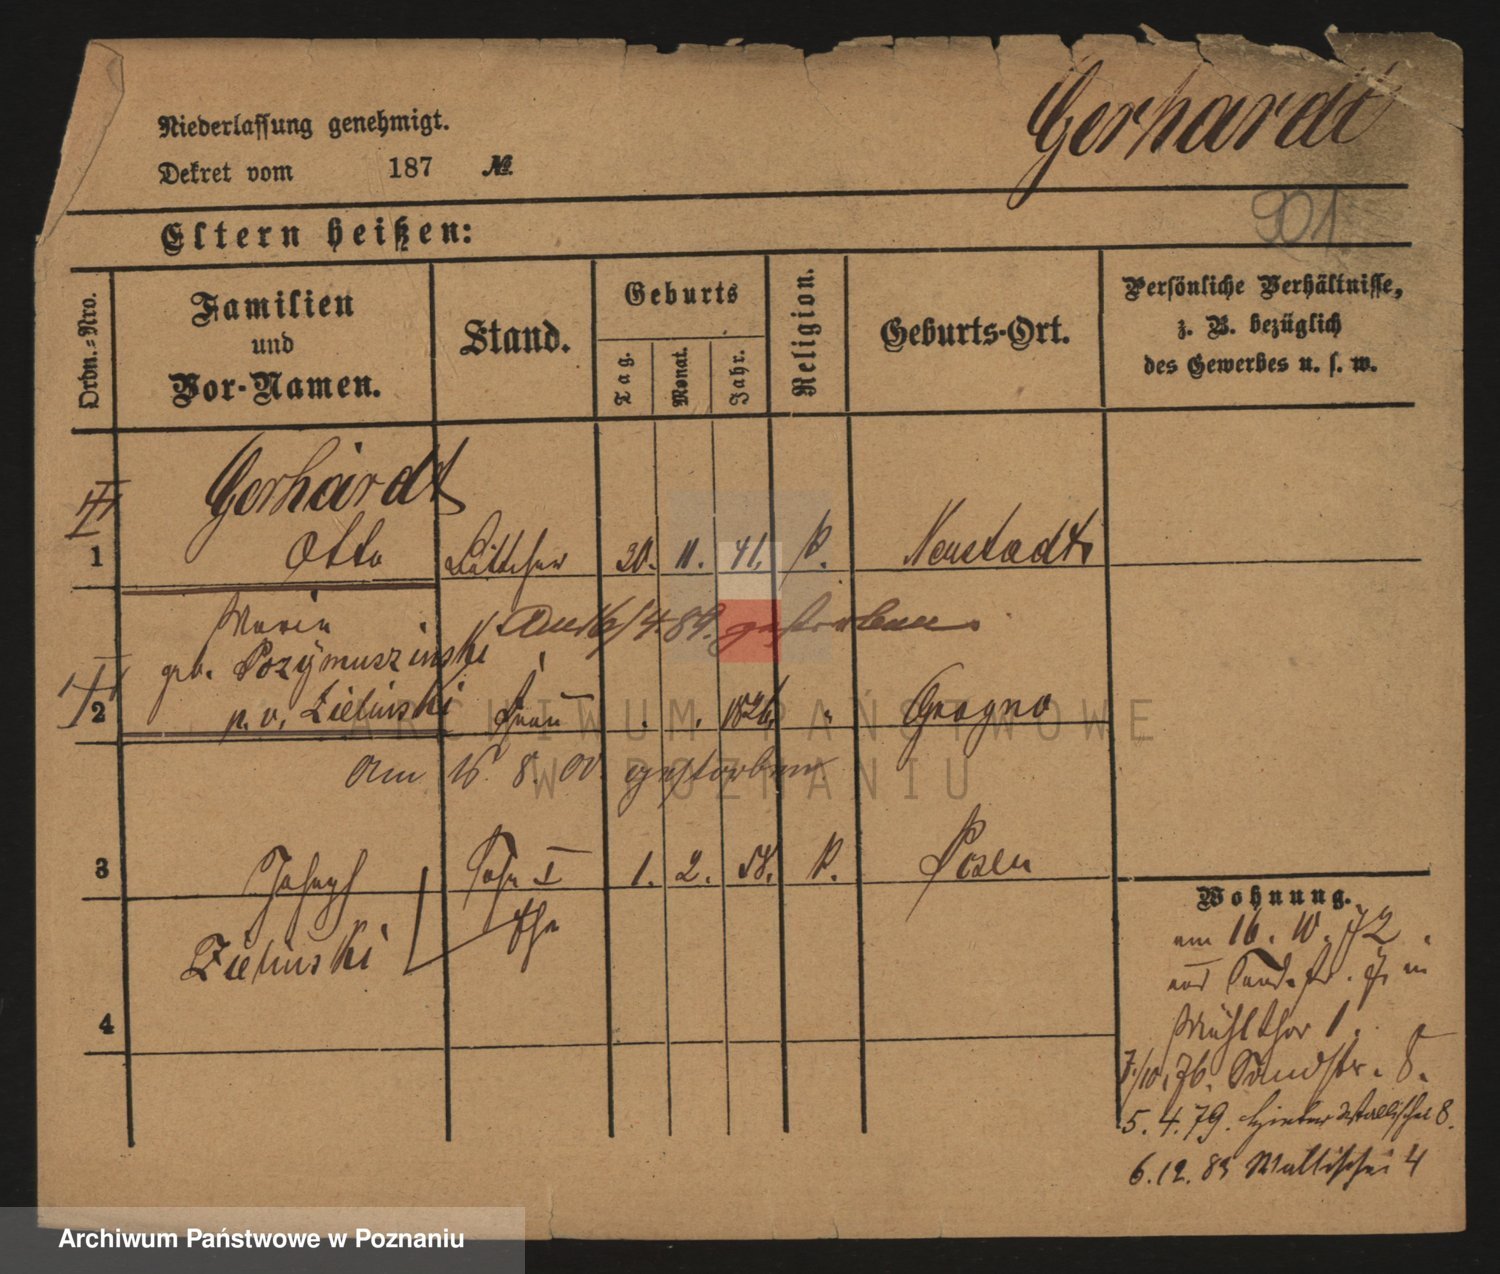 Gerhardt
Niederlassung genehmigt.
Dekret vom 187 №
901
Eltern heißen:
Ordn.-Nro.
Familien
und
Vor-Namen.
Stand.
Geburts
Tag.
Monat.
Jahr.
Religion.
Geburts-Ort.
Persönliche Verhältnisse,
z. B. bezüglich
des Gewerbes u. s. w.
Gerhardt
1 Otto Böttcher 30. 11. 41. k. Neustadt
Maria
Am 16/4. 89. gestorben.
geb. Pozymuszinski
2 p. v. Zielinski Frau 1826
am 16. 8. 00. gestorben
3 Joseph Sohn I 1. 2. 58. k. Posen
Ehe
Zielinski
4
Wohnung.
am 16. 10. 72.
aus Sandstr. 8 in
Mühlthor 1.
7./10. 76. Sandstr. 8.
5. 4. 79. Hinter Wallischei 8.
6. 12. 83 Wallischei 4
ARCHIWUM PAŃSTWOWE
W POZNANIU
Archiwum Państwowe w Poznaniu